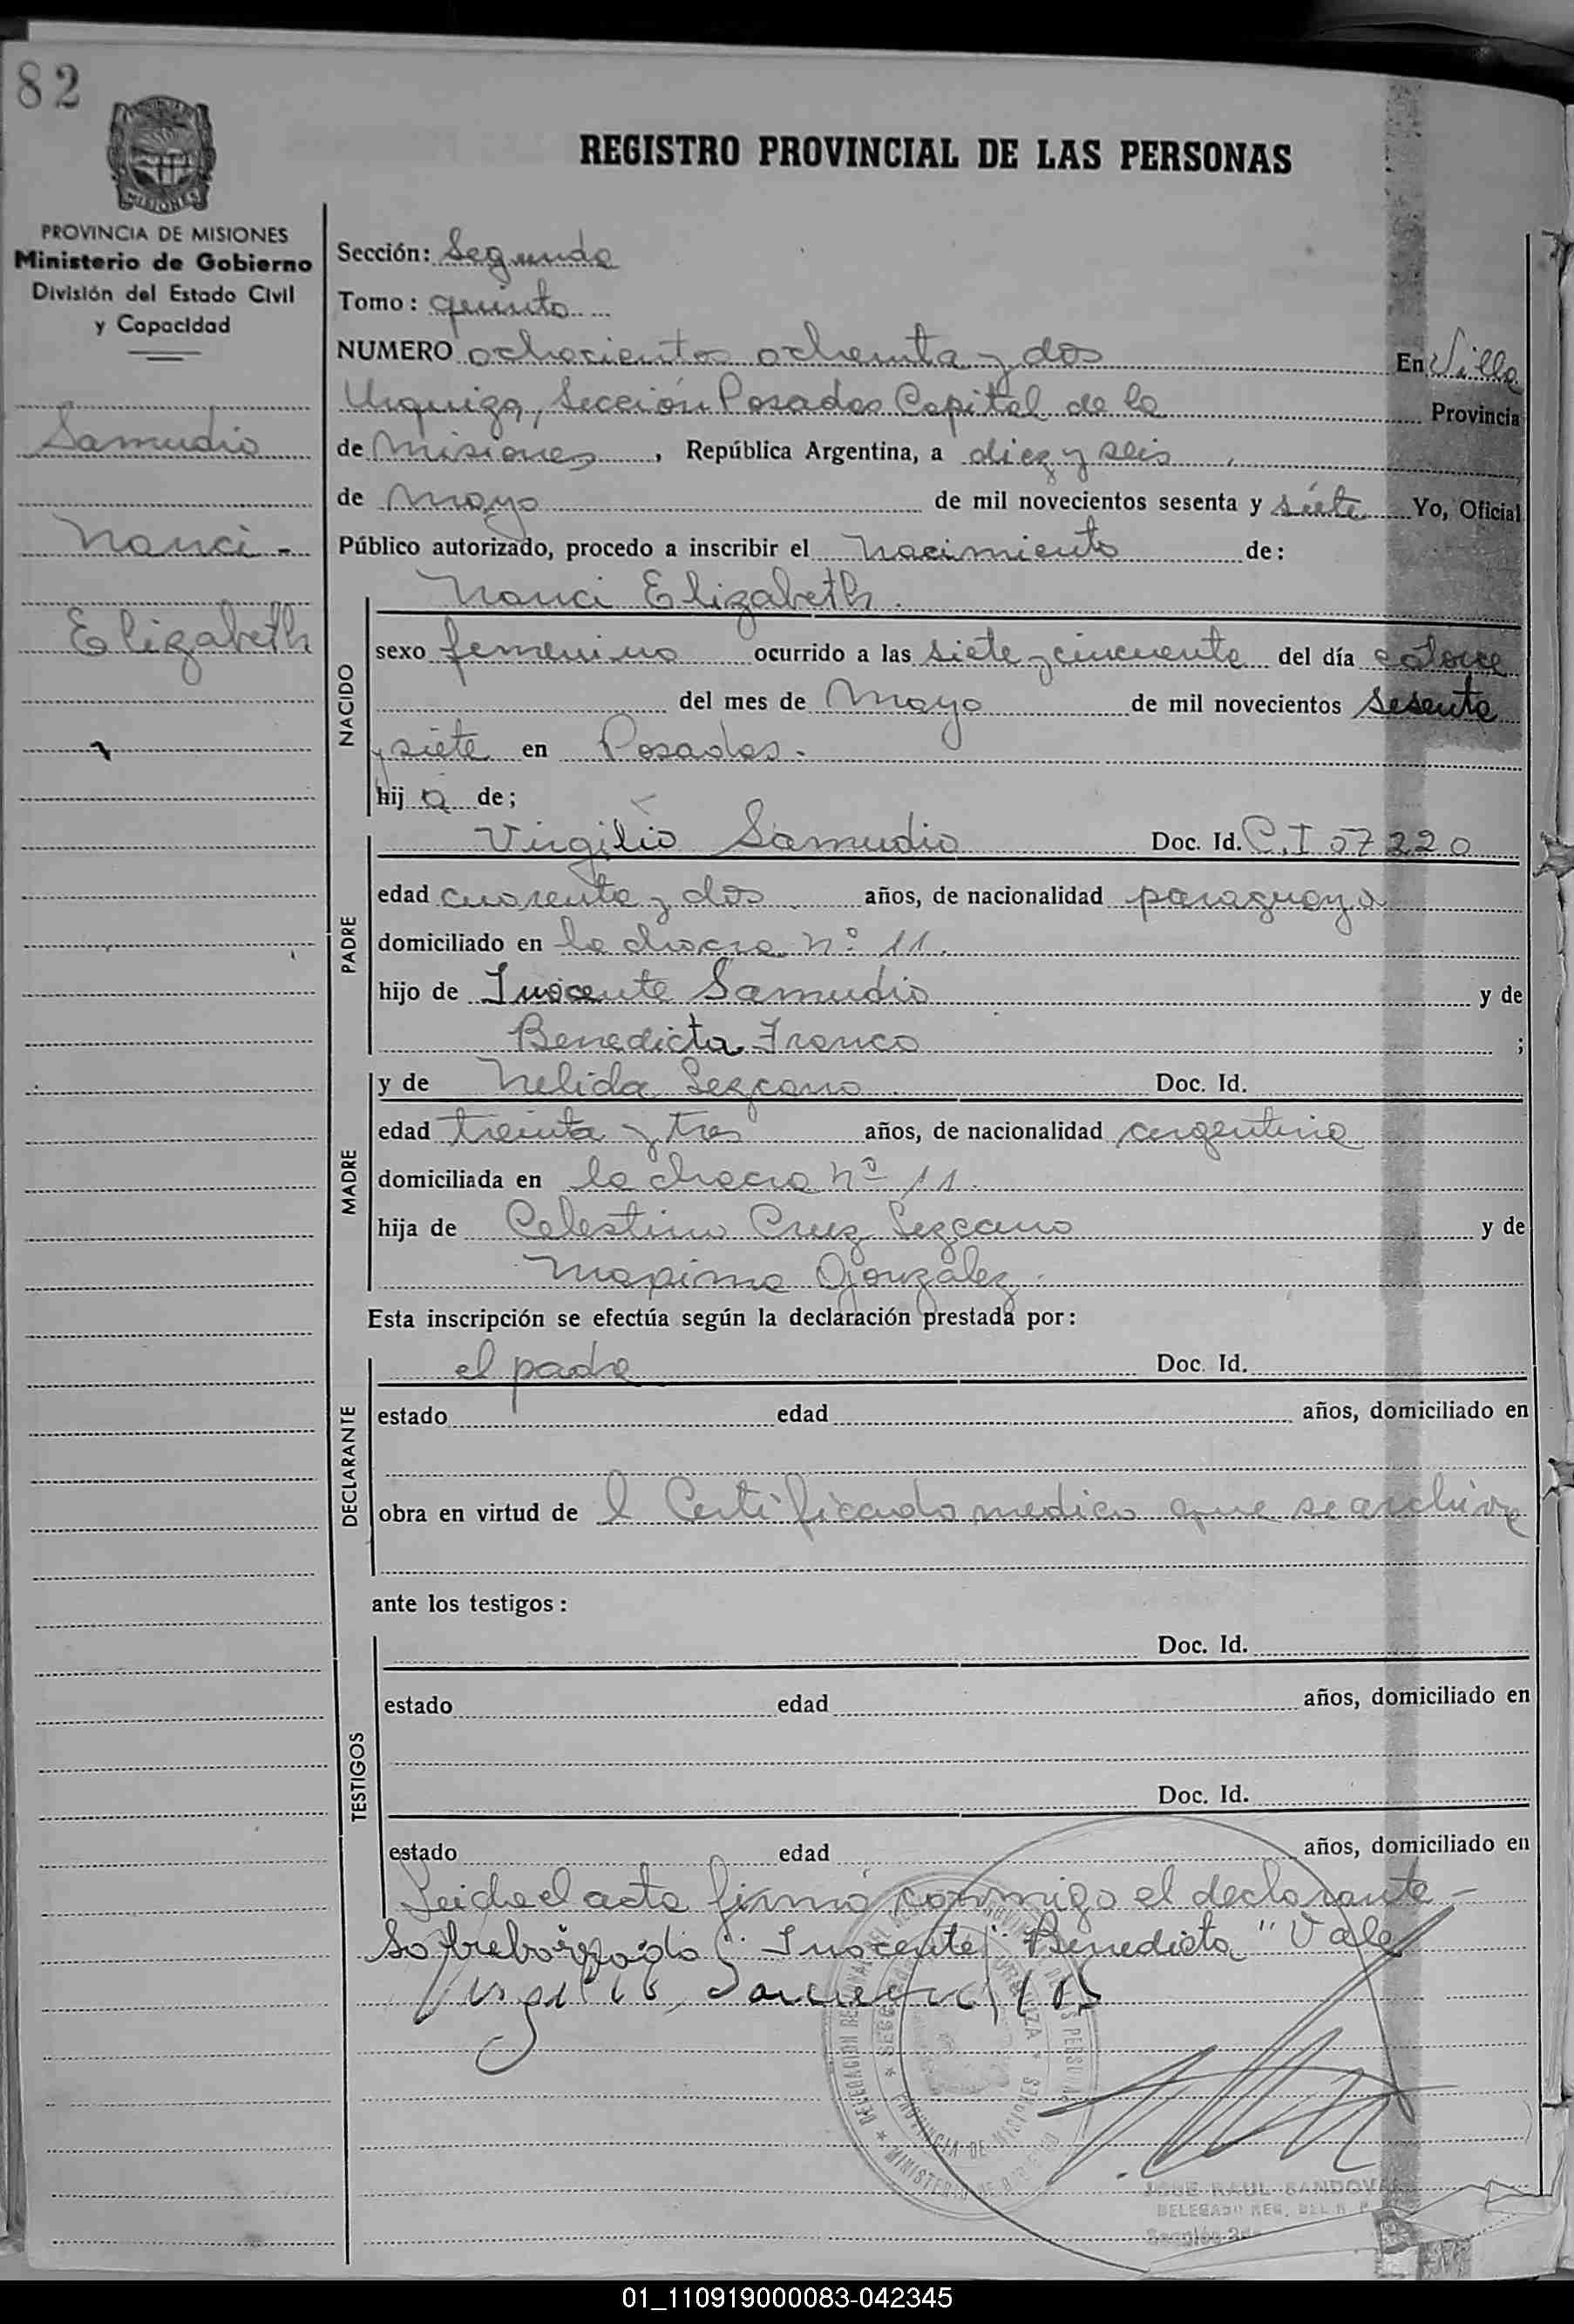 82
REGISTRO PROVINCIAL DE LAS PERSONAS
MISIONES
PROVINCIA DE MISIONES
Ministerio de Gobierno
División del Estado Civil
y Capacidad
Samudio
Nanci -
Elizabeth
Sección: Segunda
Tomo: quinto
NUMERO ochocientos ochenta y dos En Villa
Urquiza, Sección Posadas Capital de la Provincia
de Misiones, República Argentina, a diez y seis
de Mayo de mil novecientos sesenta y siete Yo, Oficial
Público autorizado, procedo a inscribir el Nacimiento de:
Nanci Elizabeth.
NACIDO
sexo femenino ocurrido a las siete y cincuenta del día catorce
del mes de Mayo de mil novecientos sesenta
y siete en Posadas.
hij a de;
PADRE
Virgilio Samudio Doc. Id. C.I 57220
edad cuarenta y dos años, de nacionalidad paraguaya
domiciliado en la chacra nº 11.
hijo de Inocente Samudio y de
Benedicta Franco ;
MADRE
y de Nelida Lezcano Doc. Id.
edad treinta y tres años, de nacionalidad argentina
domiciliada en la chacra nº 11.
hija de Celestino Cruz Lezcano y de
Maxima Gonzalez.
Esta inscripción se efectúa según la declaración prestada por:
DECLARANTE
el padre Doc. Id.
estado edad años, domiciliado en
obra en virtud de l Certificado medico que se archiva
ante los testigos:
TESTIGOS
Doc. Id.
estado edad años, domiciliado en
Doc. Id.
estado edad años, domiciliado en
Leida el acta firmó conmigo el declarante -
Sobreborrado: "Inocente" Benedicta" Vale
Virgilio
JOSE RAUL SANDOVAL
DELEGADO REG. DEL R. P.
01_110919000083-042345